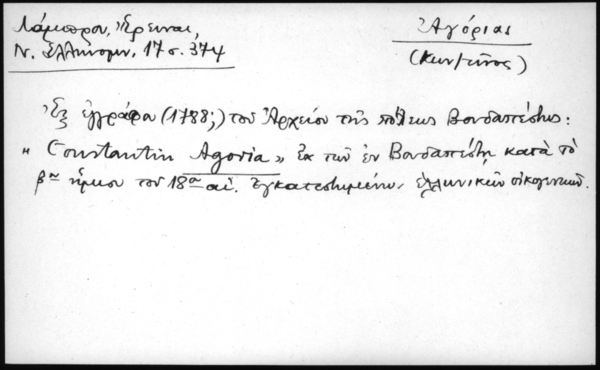 Λάμπρου, Ἔρευναι,
Ν. Ἑλληνομν. 17 σ. 374
Ἀγόριας
(Κων/τῖνος)
Ἐξ ἐγγράφου (1788;) τοῦ Ἀρχείου τῆς πόλεως Βουδαπέστης:
"Constantin Agoria" ἐκ τῶν ἐν Βουδαπέστῃ κατὰ τὸ
βον ἥμισυ τοῦ 18ου αἰ. ἐγκατεστημένων ἑλληνικῶν οἰκογενειῶν.